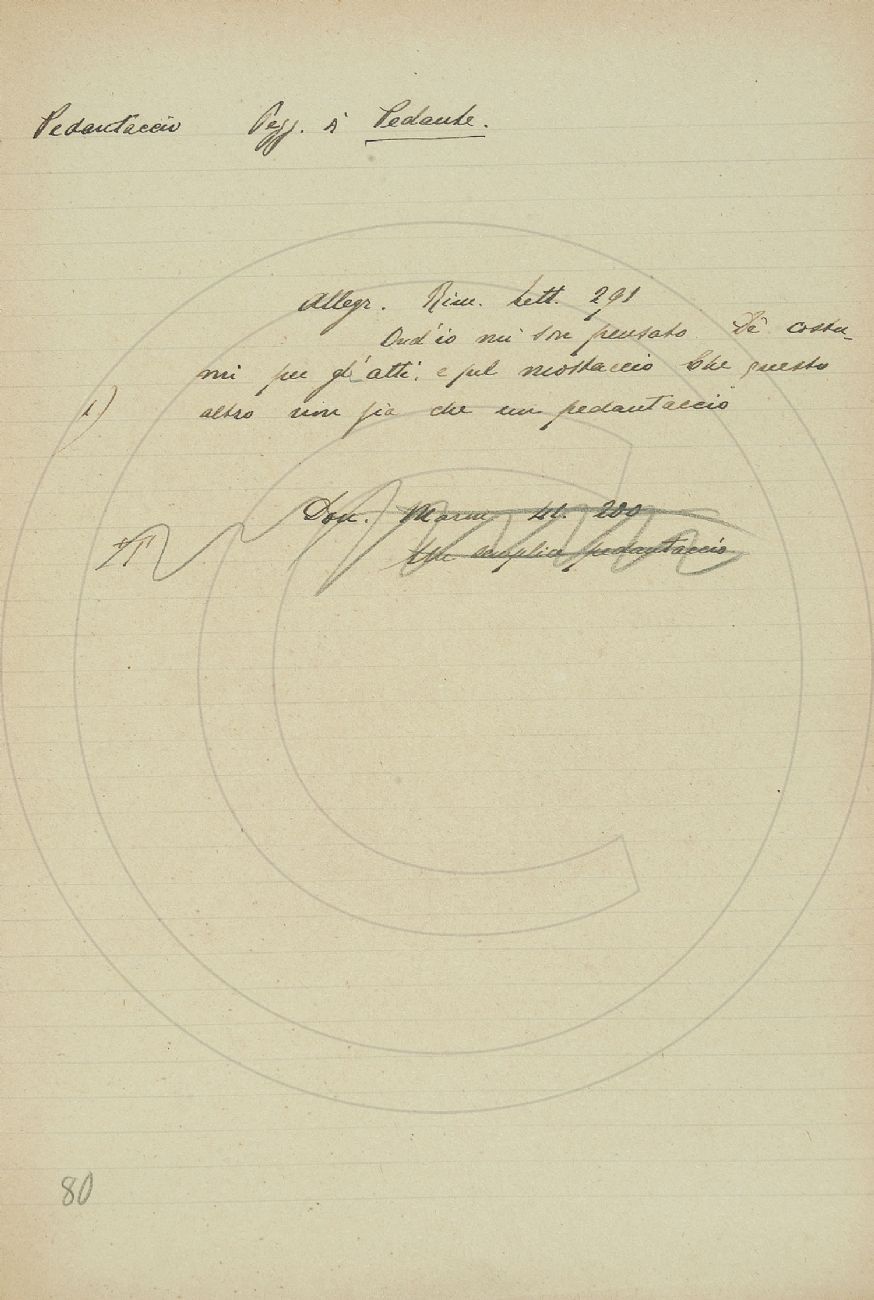 Pedantaccio Pegg. di Pedante.
Allegr. Rim. Lett. 291
Ond'io mi son pensato De' costu-
mi per gl'atti, e pel mostaccio Che questo
1) altro non sia che un pedantaccio
Don. Marm. 200
Che semplice pedantaccio
80